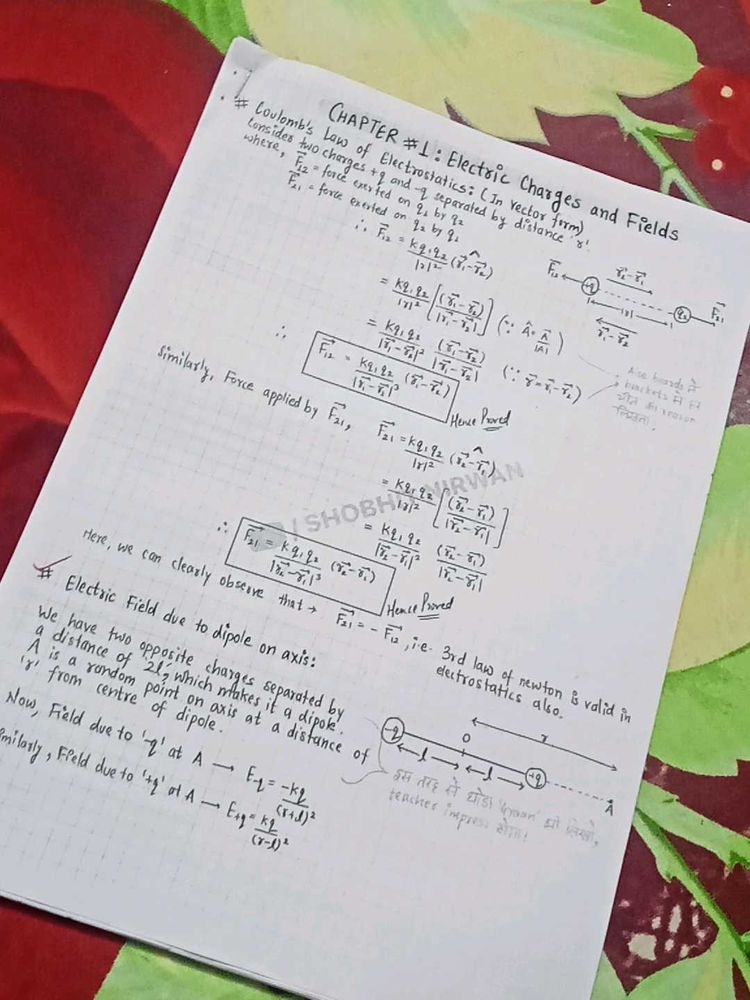 CHAPTER #1: Electric Charges and Fields
# Coulomb's Law of Electrostatics: (In vector form)
Consider two charges +q and -q separated by distance 'r'.
where, F⃗₁₂ = force exerted on q₁ by q₂
F⃗₂₁ = force exerted on q₂ by q₁
∴ F⃗₁₂ = kq₁q₂/|r|² (r⃗₁-r⃗₂)^
= kq₁q₂/|r|² [(r⃗₁-r⃗₂)/|r⃗₁-r⃗₂|] (∵ Â = A⃗/|A|)
= kq₁q₂/|r⃗₁-r⃗₂|² (r⃗₁-r⃗₂)/|r⃗₁-r⃗₂| (∵ r⃗ = r⃗₁-r⃗₂)
∴ F⃗₁₂ = kq₁q₂/|r⃗₁-r⃗₂|³ (r⃗₁-r⃗₂)
Hence Proved
F⃗₁₂ +q r⃗₂-r⃗₁ |r| r⃗₁-r⃗₂ q₂ F⃗₂₁
boards में
brackets में
reason
लिखना।
Similarly, Force applied by F⃗₂₁, F⃗₂₁ = kq₁q₂/|r|² (r⃗₂-r⃗₁)^
= kq₁q₂/|r|² [(r⃗₂-r⃗₁)/|r⃗₂-r⃗₁|]
= kq₁q₂/|r⃗₂-r⃗₁|² (r⃗₂-r⃗₁)/|r⃗₂-r⃗₁|
∴ F⃗₂₁ = kq₁q₂/|r⃗₂-r⃗₁|³ (r⃗₂-r⃗₁)
Hence Proved
/ SHOBHIT NIRWAN
Here, we can clearly observe that → F⃗₂₁ = - F⃗₁₂, i.e. 3rd law of newton is valid in
electrostatics also.
# Electric Field due to dipole on axis:
We have two opposite charges separated by
a distance of '2l', which makes it a dipole.
A is a random point on axis at a distance of
'r' from centre of dipole.
-q O r
l l +q A
Now, Field due to '-q' at A → E-q = -kq/(r+l)²
milarly, Field due to '+q' at A → E+q = kq/(r-l)²
इस तरह से थोड़ा 'gyaan' भी लिखो,
teacher impress होगा।